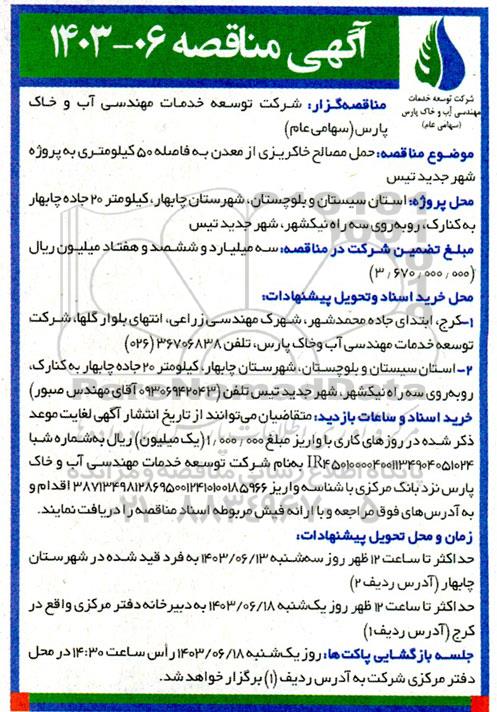 آگهی مناقصه ۰۶-۱۴۰۳
شرکت توسعه خدمات
مهندسی آب و خاک پارس
(سهامی عام)
مناقصه‌گزار: شرکت توسعه خدمات مهندسی آب و خاک
پارس(سهامی عام)
موضوع مناقصه: حمل مصالح خاکریزی از معدن به فاصله ۵۰ کیلومتری به پروژه
شهر جدید تیس
محل پروژه: استان سیستان و بلوچستان، شهرستان چابهار، کیلومتر ۲۰ جاده چابهار
به کنارک، روبه‌روی سه راه نیکشهر، شهر جدید تیس
مبلغ تضمین شرکت در مناقصه: سه میلیارد و ششصد و هفتاد میلیون ریال
(۳٫۶۷۰٫۰۰۰٫۰۰۰)
محل خرید اسناد و تحویل پیشنهادات:
۱-کرج، ابتدای جاده محمدشهر، شهرک مهندسی زراعی، انتهای بلوار گلها، شرکت
توسعه خدمات مهندسی آب وخاک پارس، تلفن ۳۶۷۰۶۸۳۸ (۰۲۶)
۲-استان سیستان و بلوچستان، شهرستان چابهار، کیلومتر ۲۰ جاده چابهار به کنارک،
روبه‌روی سه راه نیکشهر، شهر جدید تیس تلفن (۰۹۳۰۶۹۴۲۰۴۳ آقای مهندس صبور)
خرید اسناد و ساعات بازدید: متقاضیان می‌توانند از تاریخ انتشار آگهی لغایت موعد
ذکر شده در روزهای کاری با واریز مبلغ ۱٫۰۰۰٫۰۰۰ (یک میلیون) ریال به‌شماره شبا
IR۴۵۰۱۰۰۰۰۴۰۰۱۱۳۴۹۰۴۰۵۱۰۲۴ به‌نام شرکت توسعه خدمات مهندسی آب و خاک
پارس نزد بانک مرکزی با شناسه واریز ۳۸۷۱۳۴۹۸۱۲۸۶۹۵۰۰۱۲۴۱۰۰۰۱۸۵۹۶۶ اقدام و
به آدرس‌های فوق مراجعه و با ارائه فیش مربوطه اسناد مناقصه را دریافت نمایند.
زمان و محل تحویل پیشنهادات:
حداکثر تا ساعت ۱۲ ظهر روز سه‌شنبه ۱۴۰۳/۰۶/۱۳ به فرد قید شده در شهرستان
چابهار (آدرس ردیف ۲)
حداکثر تا ساعت ۱۲ ظهر روز یک‌شنبه ۱۴۰۳/۰۶/۱۸ به دبیرخانه دفتر مرکزی واقع در
کرج (آدرس ردیف ۱)
جلسه بازگشایی پاکت‌ها: روز یک‌شنبه ۱۴۰۳/۰۶/۱۸ رأس ساعت ۱۴:۳۰ در محل
دفتر مرکزی شرکت به آدرس ردیف (۱) برگزار خواهد شد.